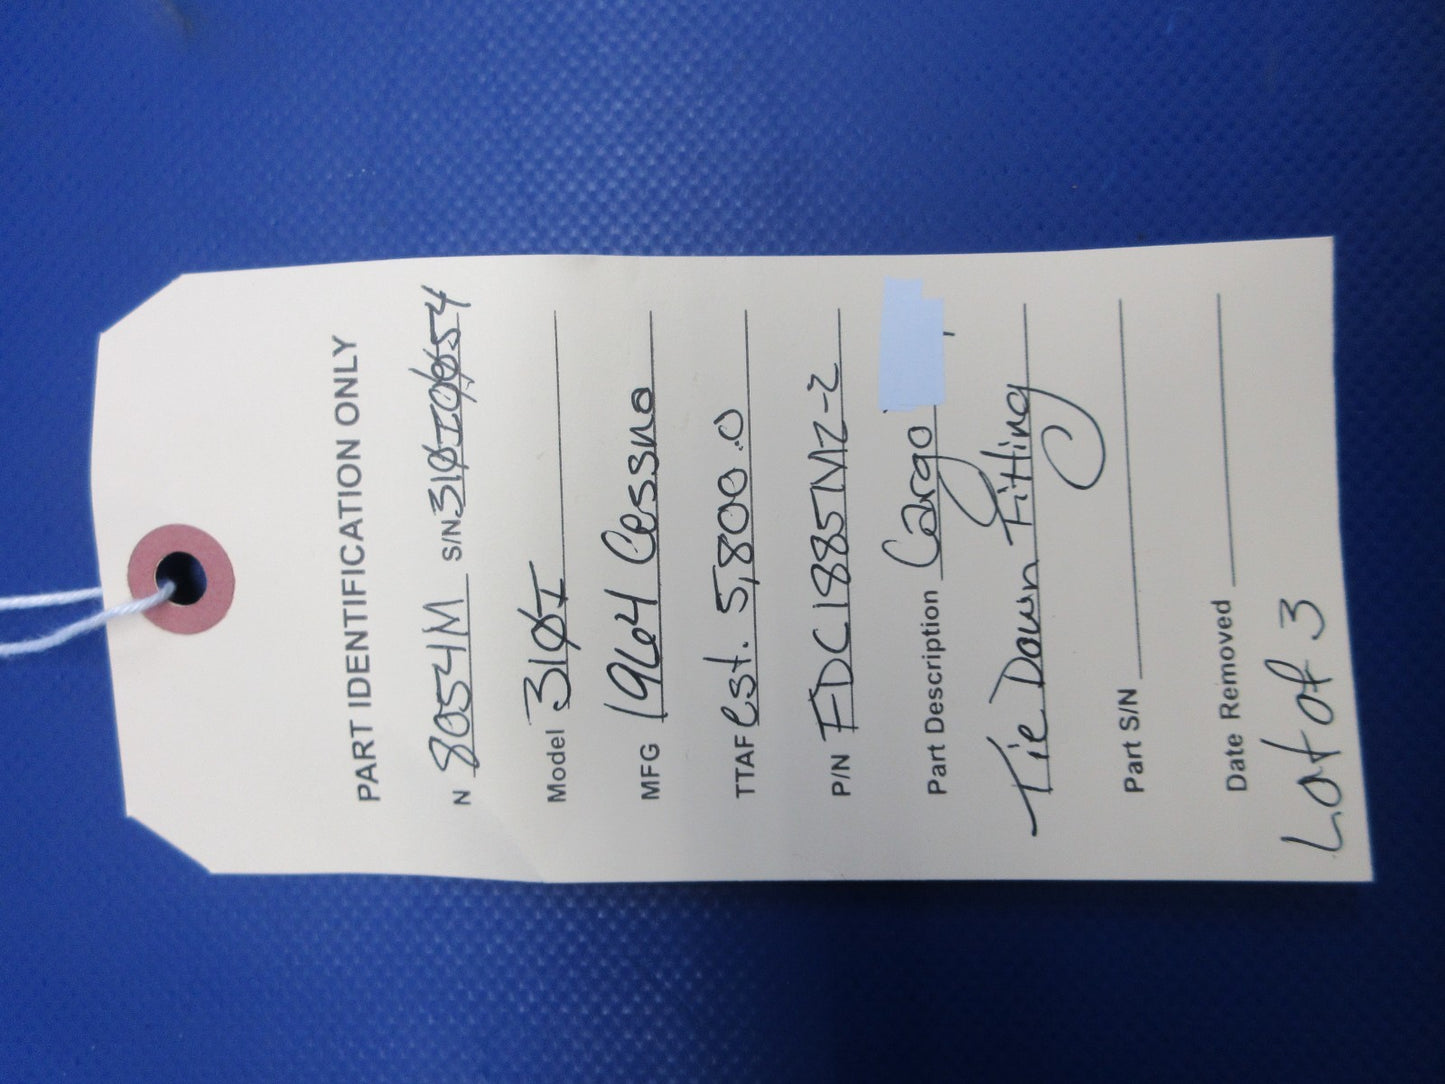 PART IDENTIFICATION ONLY
N 8054M S/N 310I0054
Model 310I
MFG 1964 Cessna
TTAF est. 5,800.0
P/N FDC1885MZ-2
Part Description Cargo
Tie Down Fitting
Part S/N
Date Removed
Lot of 3